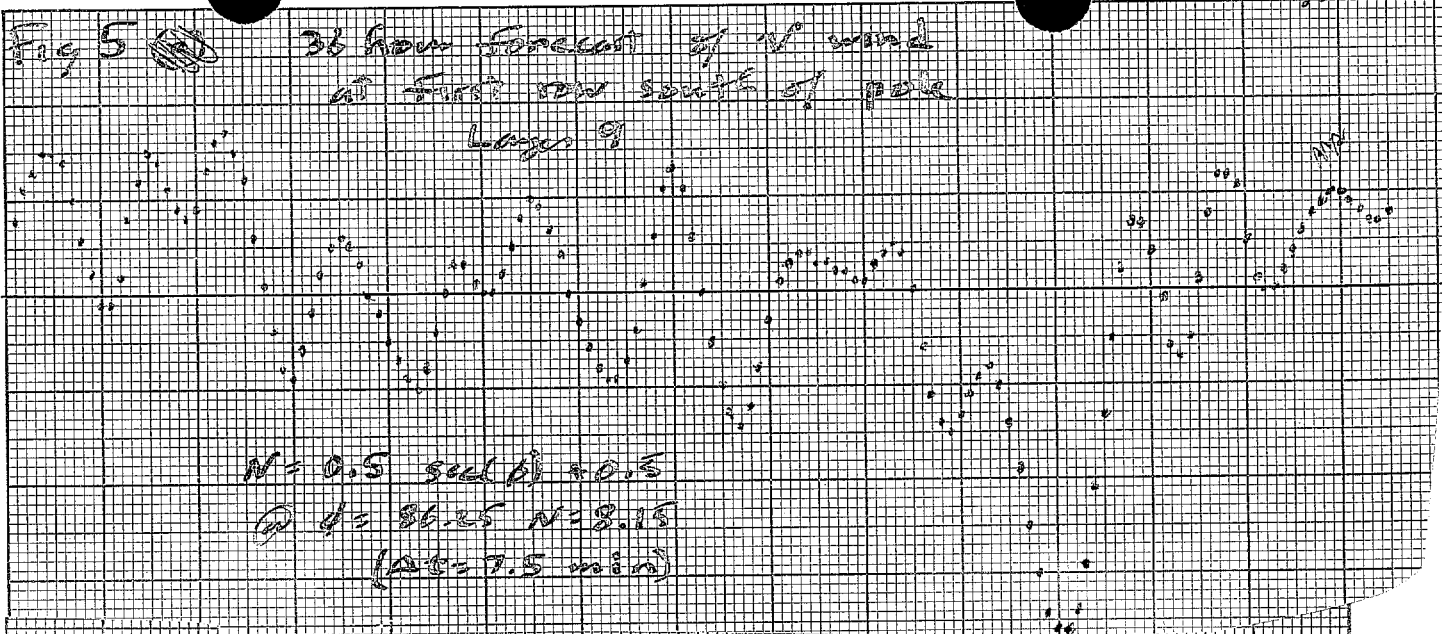 Fig 5 36 hour forecast of V wind
at first row south of pole
Layer 9
N = 0.5 sec(ϕ) + 0.5
@ ϕ = 86.25 N = 8.15
(Δt = 7.5 min)